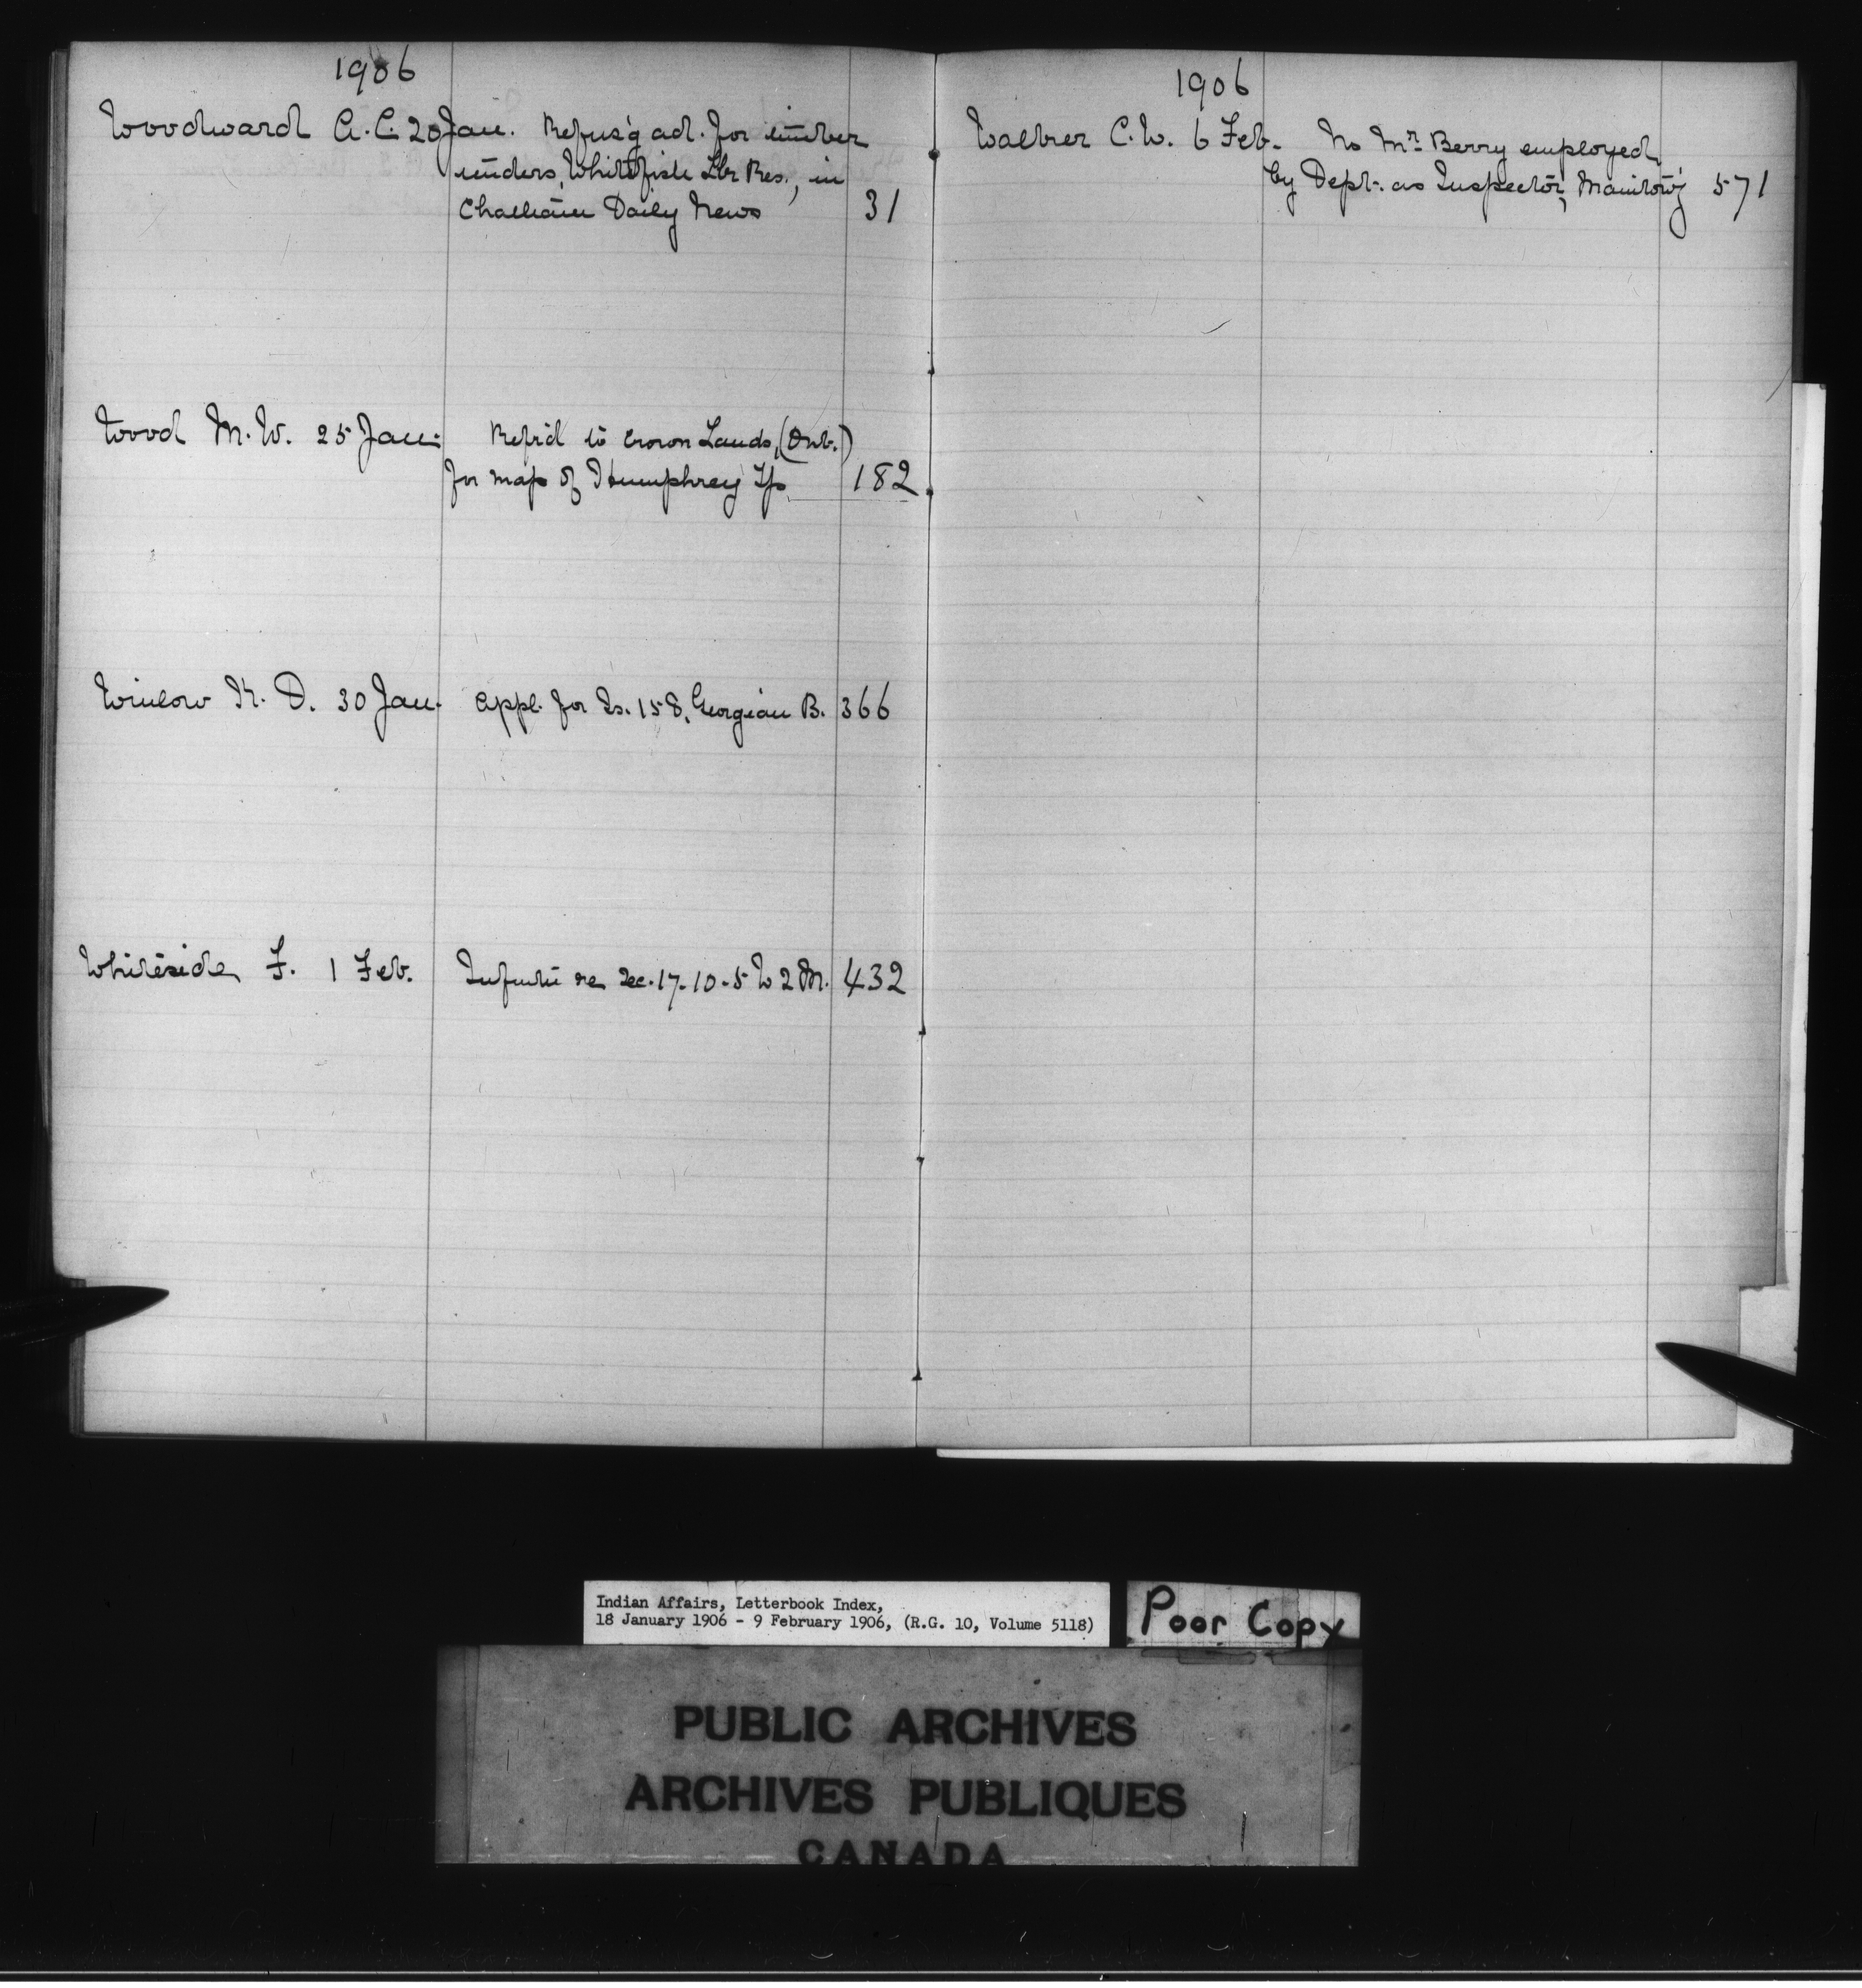 1906
Woodward A.C. 20 Jan. Refus'g ad. for timber
tenders, Whitefish Lke Res., in
Chatham Daily News 31
Wood M.W. 25 Jan. Ref'd to Crown Lands, (Ont.)
for map of Humphrey Tp 182
Winlow K. D. 30 Jan. Appl. for Is. 158, Georgian B. 366
Whiteside F. 1 Feb. re Sec. 17-10-5 W 2 M. 432
1906
C.W. 6 Feb. No Mr. Berry employed
by Dept. as Inspector, Manitow'g 571
Indian Affairs, Letterbook Index,
18 January 1906 - 9 February 1906, (R.G. 10, Volume 5118)
Poor Copy
PUBLIC ARCHIVES
ARCHIVES PUBLIQUES
CANADA